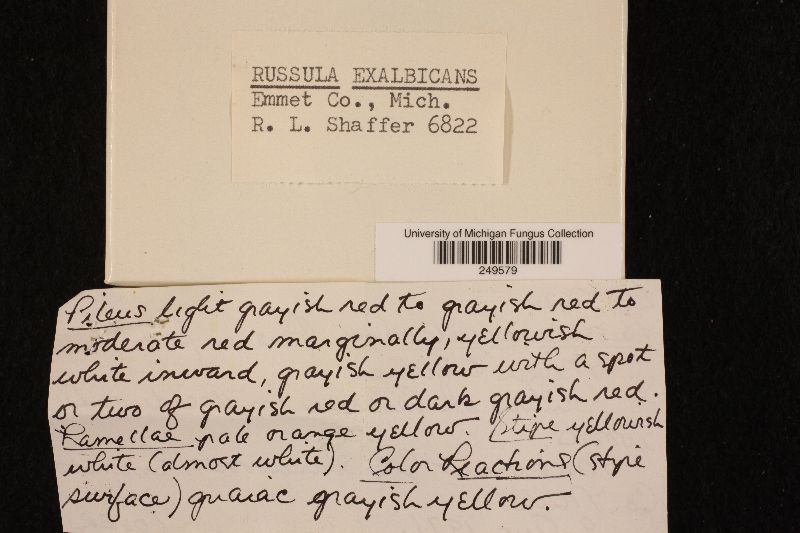 RUSSULA EXALBICANS
Emmet Co., Mich.
R. L. Shaffer 6822
University of Michigan Fungus Collection
249579
Pileus light grayish red to grayish red to
moderate red marginally, yellowish
white inward, grayish yellow with a spot
or two of grayish red or dark grayish red.
Lamellae pale orange yellow. Stipe yellowish
white (almost white). Color Reactions (stipe
surface) guaiac grayish yellow.